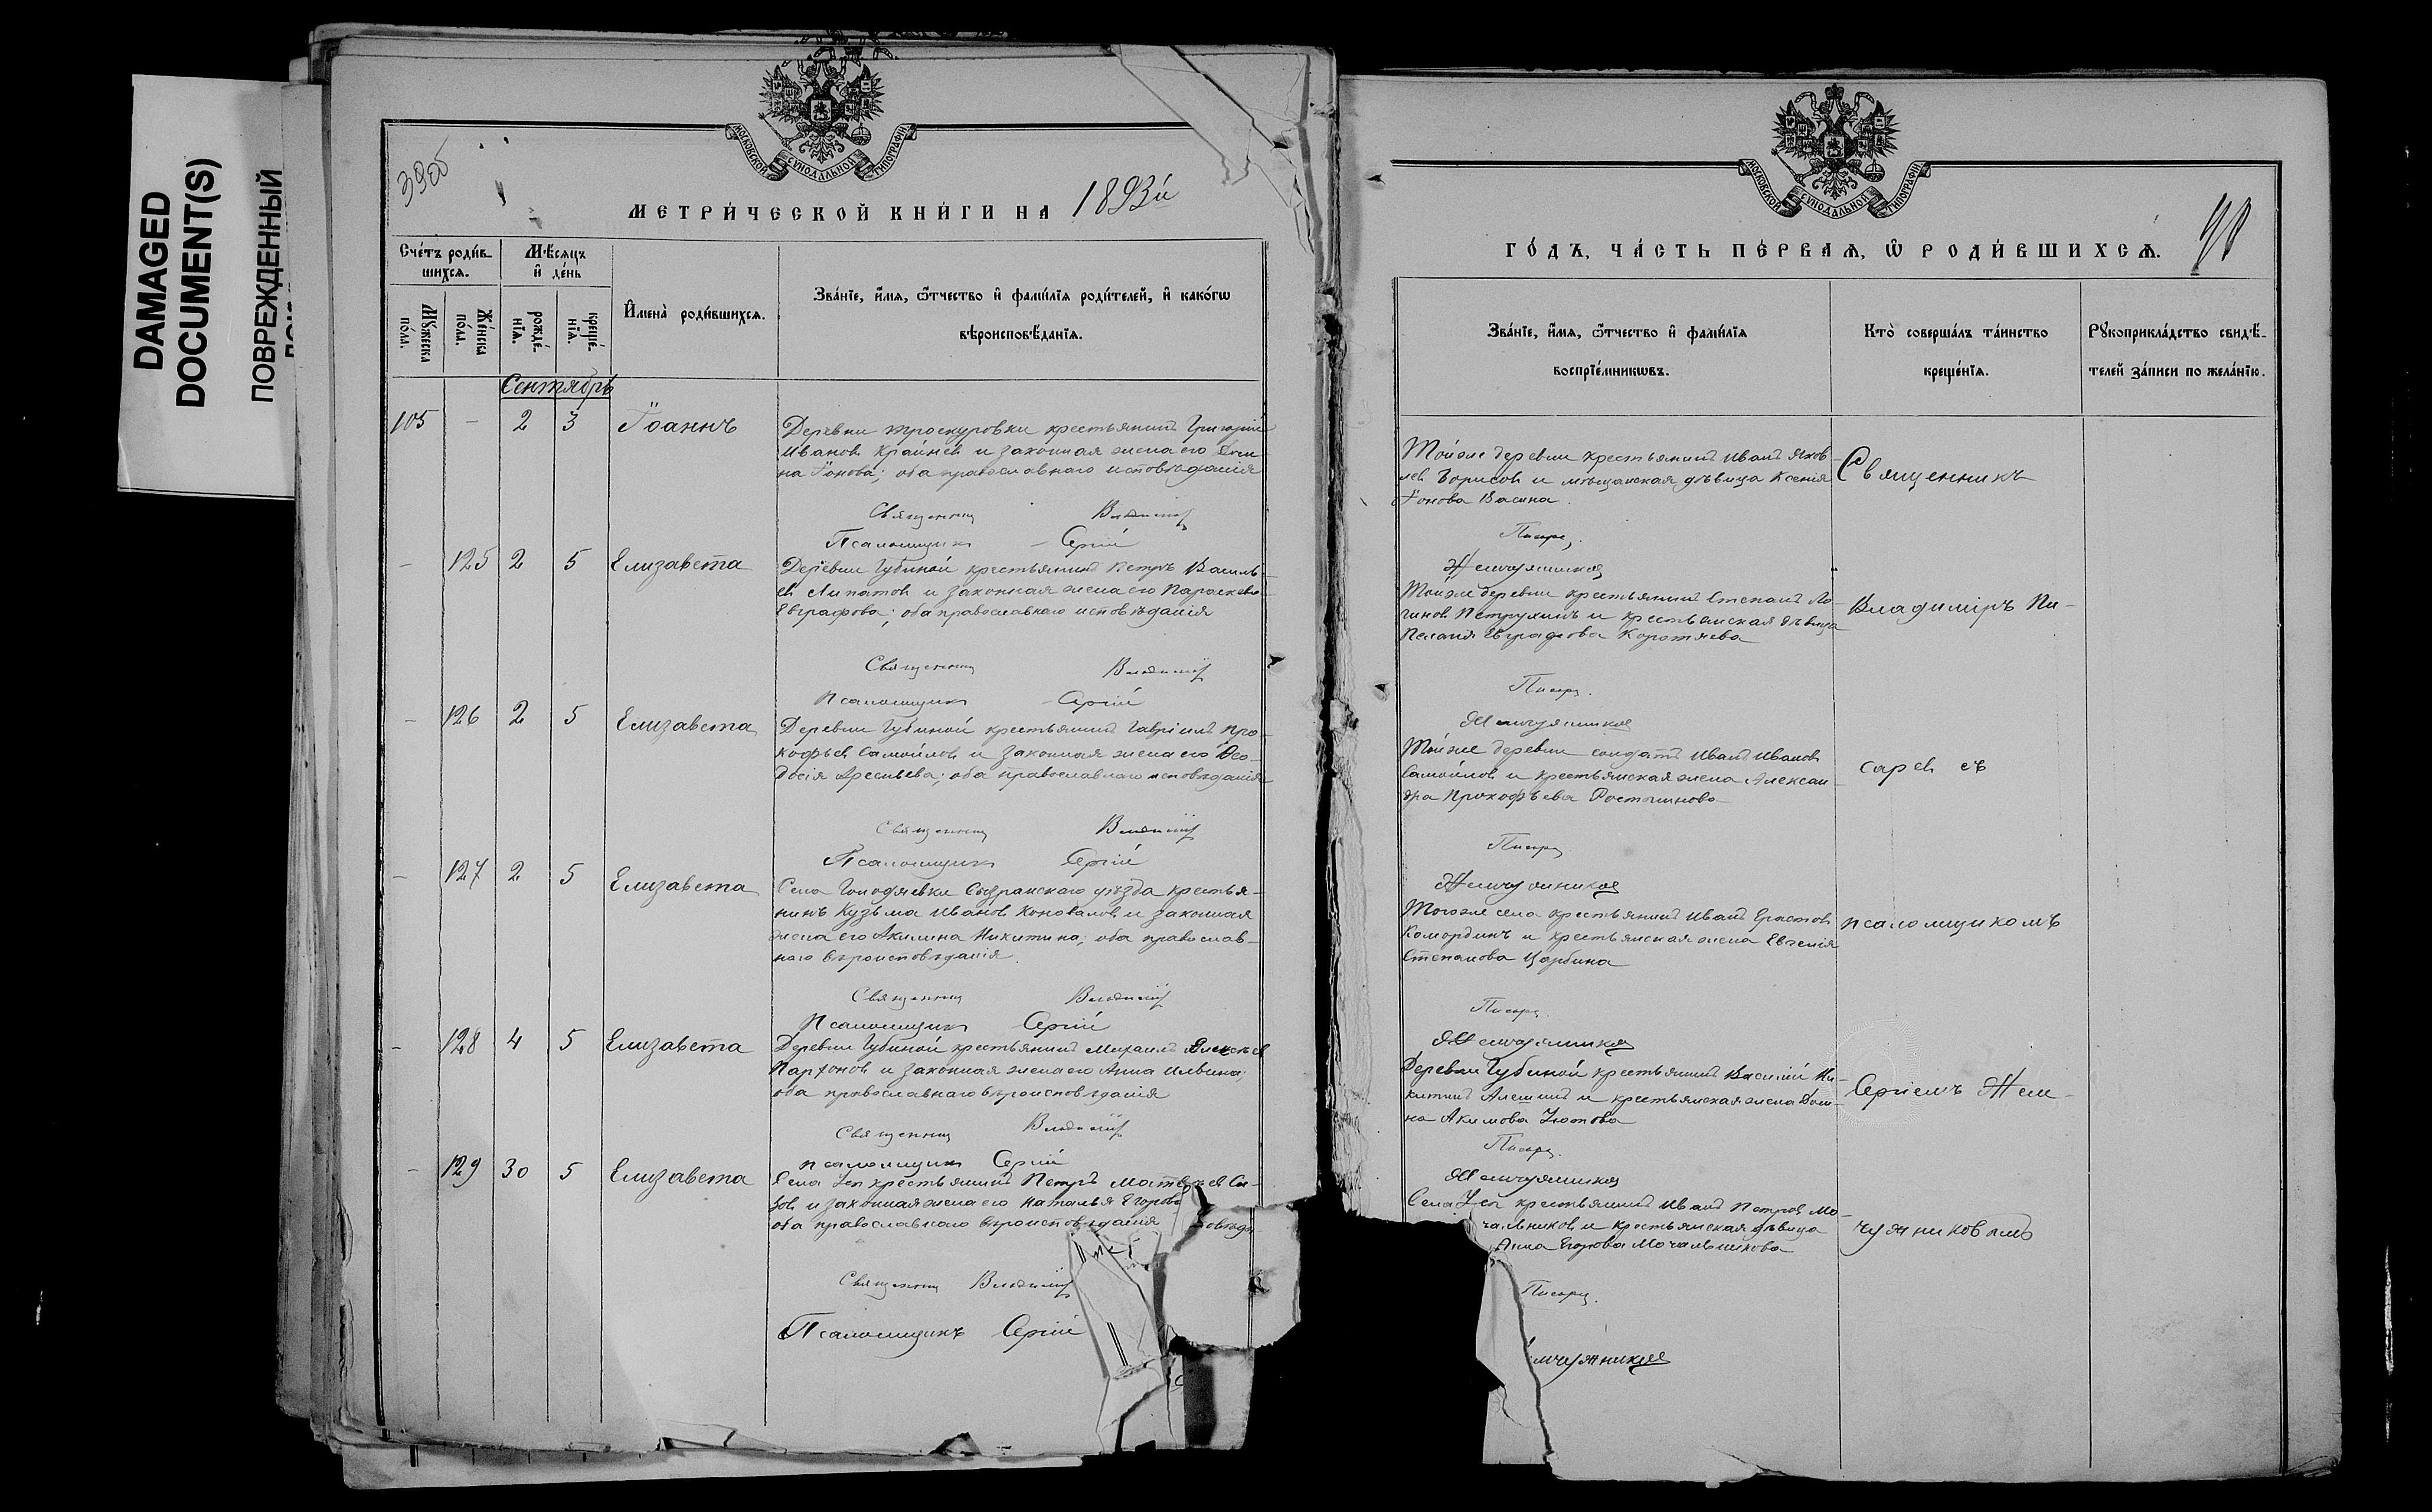 DAMAGED
DOCUMENT(S)
ПОВРЕЖДЕННЫЙ
МОСКОВСКОЙ СУНОДАЛЬНОЙ ТИПОГРАФІИ
МЕТРИ́ЧЕСКОЙ КНИ́ГИ НА 1893й
Сче́тъ роди́в-
шихсѧ.
Мѣ́сѧцъ
и҆ де́нь
Мꙋ́жеска
по́ла.
Же́нска
по́ла.
рожде́-
нїѧ.
креще́-
нїѧ.
И҆мена̀ роди́вшихсѧ.
Зва́нїе, и҆́мѧ, ѻ҆́тчество и҆ фами́лїѧ роди́телей, и҆ како́гѡ
вѣроисповѣ́данїѧ.
Сентябрь
105 - 2 3 Іоаннъ
Деревни Проскуровки крестьянинъ Григорій
Ивановъ Крайневъ и законная жена его
на Іонова; оба православнаго исповѣданія
Священникъ Владиміръ
Псаломщикъ Сергій
- 125 2 5 Елизавета
Деревни Губиной крестьянинъ Петръ Василь-
евъ Липатовъ и законная жена его Параскева
Евграфова; оба православнаго исповѣданія
Священникъ Владиміръ
Псаломщикъ Сергій
- 126 2 5 Елизавета
Деревни Губиной крестьянинъ Гавріилъ Про-
кофьевъ Самойловъ и законная жена его Ѳео-
досія Арсеньева; оба православнаго исповѣданія
Священникъ Владиміръ
Псаломщикъ Сергій
- 127 2 5 Елизавета
Села Голодяевки Сызранскаго уѣзда крестья-
нинъ Кузьма Ивановъ Коноваловъ и законная
жена его Акилина Никитина; оба православ-
наго вѣроисповѣданія.
Священникъ Владиміръ
Псаломщикъ Сергій
- 128 4 5 Елизавета
Деревни Губиной крестьянинъ Михаилъ Алексѣевъ
Парѳоновъ и законная жена его Анна Ильина;
оба православнаго вѣроисповѣданія
Священникъ Владиміръ
Псаломщикъ Сергій
- 129 30 5 Елизавета
Села Усп крестьянинъ Петръ Матвѣевъ Си-
зовъ и законная жена его Наталья Егорова
оба православнаго вѣроисповѣданія
Священникъ Владиміръ
Псаломщикъ Сергій
МОСКОВСКОЙ СУНОДАЛЬНОЙ ТИПОГРАФІИ
ГО́ДЪ, ЧА́СТЬ ПЕ́РВАѦ, Ѽ РОДИ́ВШИХСѦ.
Зва́нїе, и҆́мѧ, ѻ҆́тчество и҆ фами́лїѧ
воспрїе́мникѡвъ.
Кто̀ соверша́лъ та́инство
креще́нїѧ.
Рꙋкоприкла́дство свидѣ́-
телей за́писи по жела́нїю.
Тойже деревни крестьянинъ Иванъ Яков-
левъ Борисовъ и мѣщанская дѣвица Ксенія
Іонова Васина.
Писар.
Жемчужниковъ
Тойже деревни крестьянинъ Степанъ Ло-
гиновъ Петрухинъ и крестьянская дѣвица
Пелагія Евграфова Коротяева
Писар.
Жемчужниковъ
Тойже деревни солдатъ Иванъ Ивановъ
Самойловъ и крестьянская жена Алексан-
дра Прокофьева
Писар.
Жемчужниковъ
Тогоже села крестьянинъ Иванъ Ерастовъ
Комординъ и крестьянская жена Евгенія
Степанова
Писар.
Жемчужниковъ
Деревни Губиной крестьянинъ Василій Ни-
китинъ Алешинъ и крестьянская жена Дом-
на Акимова Зотова
Писар.
Жемчужниковъ
Села Усп крестьянинъ Иванъ Петровъ Мо-
чальниковъ и крестьянская дѣвица
Анна Егорова Мочальникова
Писар.
емчужниковъ
Священникъ
Владиміръ Пи-
саревъ съ
псаломщикомъ
Сергіемъ Жем-
чужниковымъ